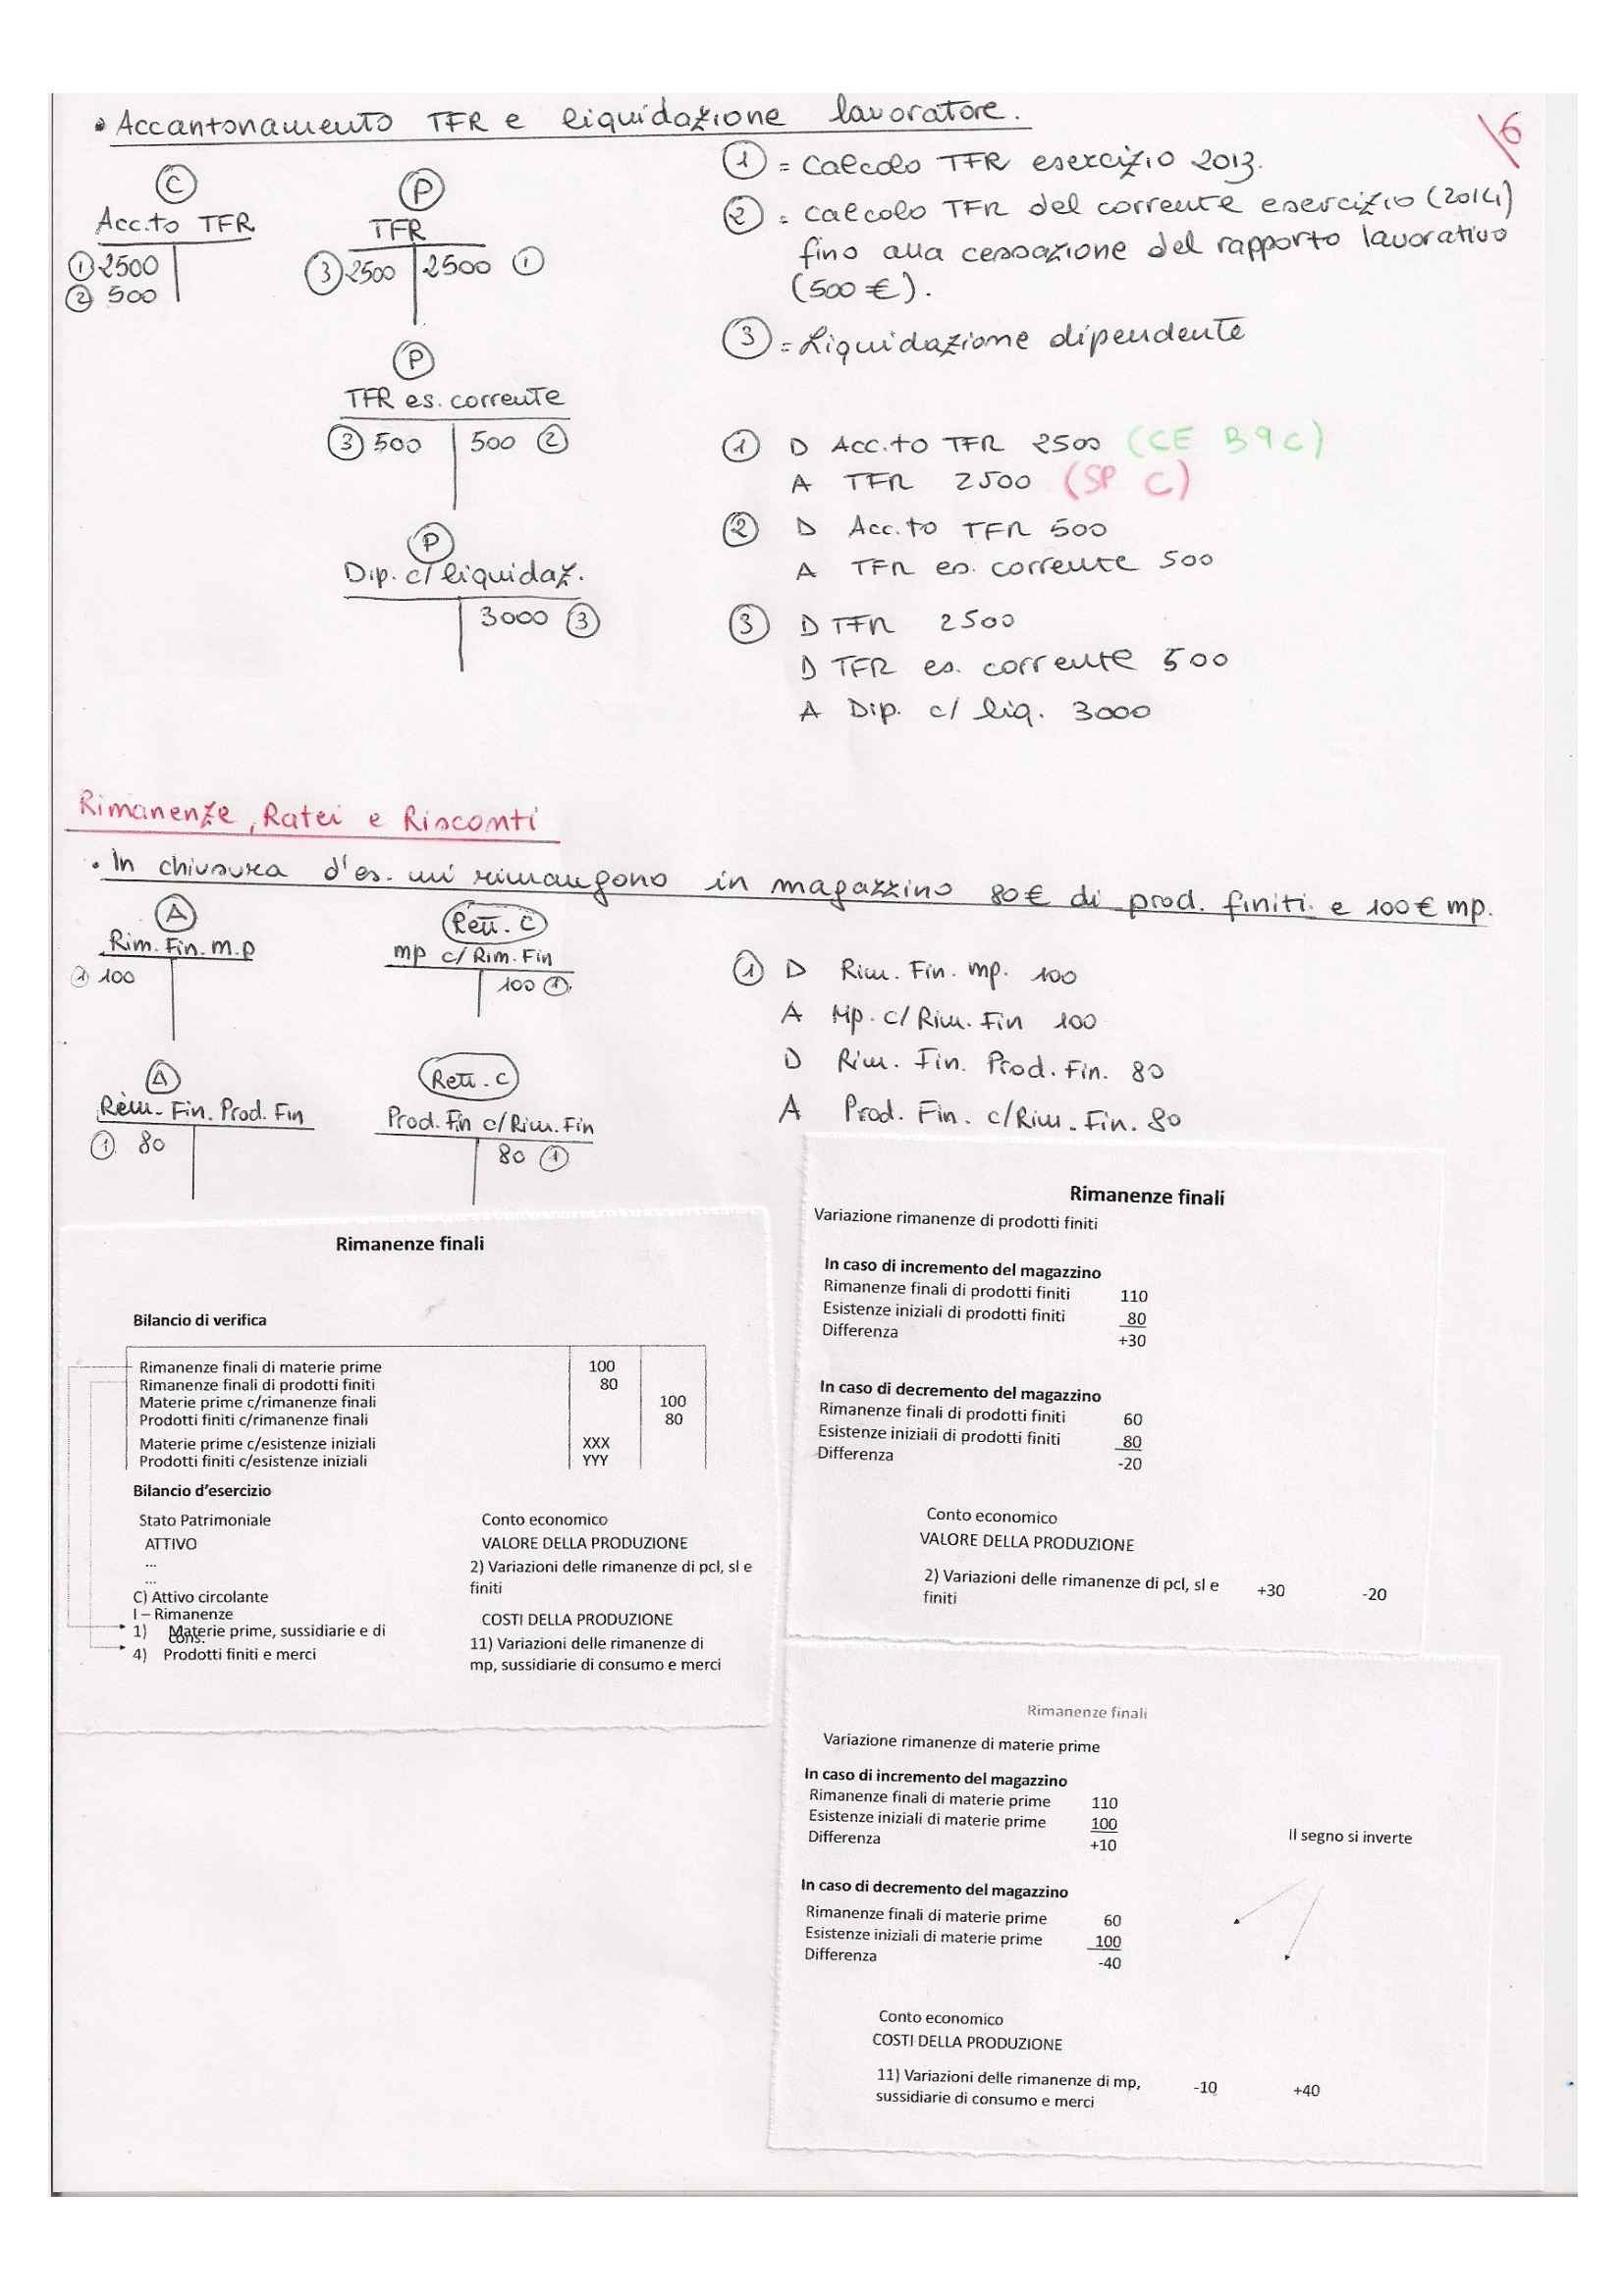 • Accantonamento TFR e liquidazione lavoratore.
16
C
P
Acc.to TFR
TFR
① 2500
② 500
③ 2500
2500 ①
P
TFR es. corrente
③ 500
500 ②
P
Dip. c/ liquidaz.
3000 ③
① = Calcolo TFR esercizio 2013.
② = Calcolo TFR del corrente esercizio (2014)
fino alla cessazione del rapporto lavorativo
(500 €).
③ = Liquidazione dipendente
① D Acc.to TFR 2500 (CE B9C)
A TFR 2500 (SP C)
② D Acc.to TFR 500
A TFR es. corrente 500
③ D TFR 2500
D TFR es. corrente 500
A Dip. c/ liq. 3000
Rimanenze, Ratei e Risconti
• In chiusura d'es. mi rimangono in magazzino 80€ di prod. finiti e 100€ mp.
A
Rett. C
Rim. Fin. m.p
mp c/ Rim. Fin
① 100
100 ①
A
Rett. C
Rim. Fin. Prod. Fin
Prod. Fin c/Rim. Fin
① 80
80 ①
① D Rim. Fin. mp. 100
A Mp. c/ Rim. Fin 100
D Rim. Fin. Prod. Fin. 80
A Prod. Fin. c/Rim. Fin. 80
Rimanenze finali
Bilancio di verifica
Rimanenze finali di materie prime 100
Rimanenze finali di prodotti finiti 80
Materie prime c/rimanenze finali 100
Prodotti finiti c/rimanenze finali 80
Materie prime c/esistenze iniziali XXX
Prodotti finiti c/esistenze iniziali YYY
Bilancio d'esercizio
Stato Patrimoniale
ATTIVO
...
...
C) Attivo circolante
I – Rimanenze
1) Materie prime, sussidiarie e di
cons.
4) Prodotti finiti e merci
Conto economico
VALORE DELLA PRODUZIONE
2) Variazioni delle rimanenze di pcl, sl e
finiti
COSTI DELLA PRODUZIONE
11) Variazioni delle rimanenze di
mp, sussidiarie di consumo e merci
Rimanenze finali
Variazione rimanenze di prodotti finiti
In caso di incremento del magazzino
Rimanenze finali di prodotti finiti 110
Esistenze iniziali di prodotti finiti 80
Differenza +30
In caso di decremento del magazzino
Rimanenze finali di prodotti finiti 60
Esistenze iniziali di prodotti finiti 80
Differenza -20
Conto economico
VALORE DELLA PRODUZIONE
2) Variazioni delle rimanenze di pcl, sl e +30 -20
finiti
Rimanenze finali
Variazione rimanenze di materie prime
In caso di incremento del magazzino
Rimanenze finali di materie prime 110
Esistenze iniziali di materie prime 100
Differenza +10
Il segno si inverte
In caso di decremento del magazzino
Rimanenze finali di materie prime 60
Esistenze iniziali di materie prime 100
Differenza -40
Conto economico
COSTI DELLA PRODUZIONE
11) Variazioni delle rimanenze di mp, -10 +40
sussidiarie di consumo e merci